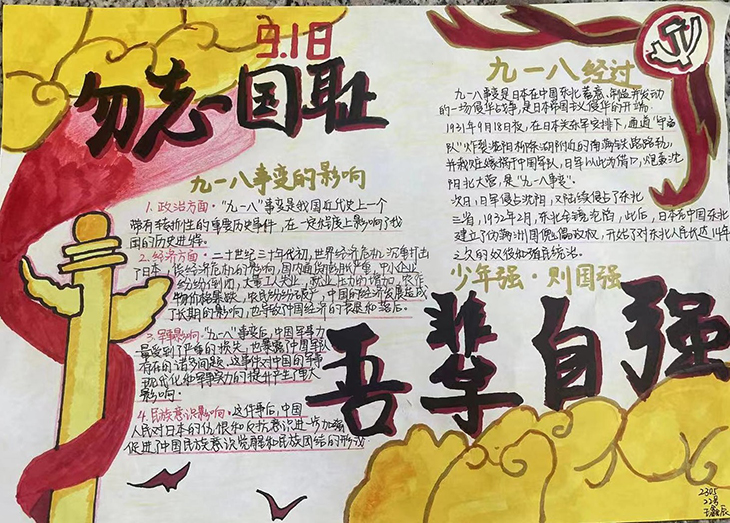 9.18
勿忘国耻
九一八事变的影响
1.政治方面·"九一八"事变是我国近代史上一个
带有转折性的重要历史事件，在一定程度上影响了我
国的历史进程。
2.经济方面·二十世纪三十年代初，世界经济危机，沉重打击
了日本，使经济危机的影响，国内通货膨胀严重，中小企业
纷纷倒闭，大量工人失业，就业压力的增加，农作
物价格暴跌，农民纷纷破产，中国的经济发展造成
了长期的影响，也导致中国经济的衰退和落后。
3.军事影响·"九一八"事变后，中国军事力
量受到了严重的损失，也暴露了中国军队
存在的诸多问题，这事件对中国的军事
现代化和军事实力的提升产生了重大
影响。
4.民族意识影响。这件事后，中国
人民对日本的仇恨和反抗意识进一步加强
促进了中国民族意识觉醒和民族团结的形成
九一八经过
九一八事变是日本在中国东北蓄意制造并发动
的一场侵华战争，是日本帝国主义侵华的开端
1931年9月18日夜，在日本关东军安排下，通道"守备
队"炸裂沈阳柳条湖附近的南满铁路路轨，
并栽赃嫁祸于中国军队，日军以此为借口，炮轰沈
阳北大营，是"九一八事变"。
次日，日军侵占沈阳，又陆续侵占了东北
三省，1932年2月，东北全境沦陷，此后，日本在中国东北
建立了伪满洲国傀儡政权，开始了对东北人民长达14年
之久的奴役和殖民统治。
少年强·则国强
吾辈自强
2305
22号